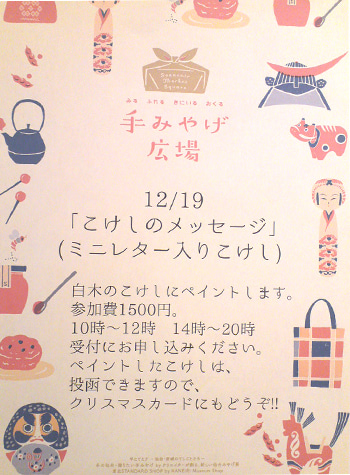 Souvenir
Market
Square
みる ふれる きにいる おくる
手みやげ
広場
12/19
「こけしのメッセージ」
(ミニレター入りこけし)
白木のこけしにペイントします。
参加費1500円。
10時〜12時 14時〜20時
受付にお申し込みください。
ペイントしたこけしは、
投函できますので、
クリスマスカードにもどうぞ!!